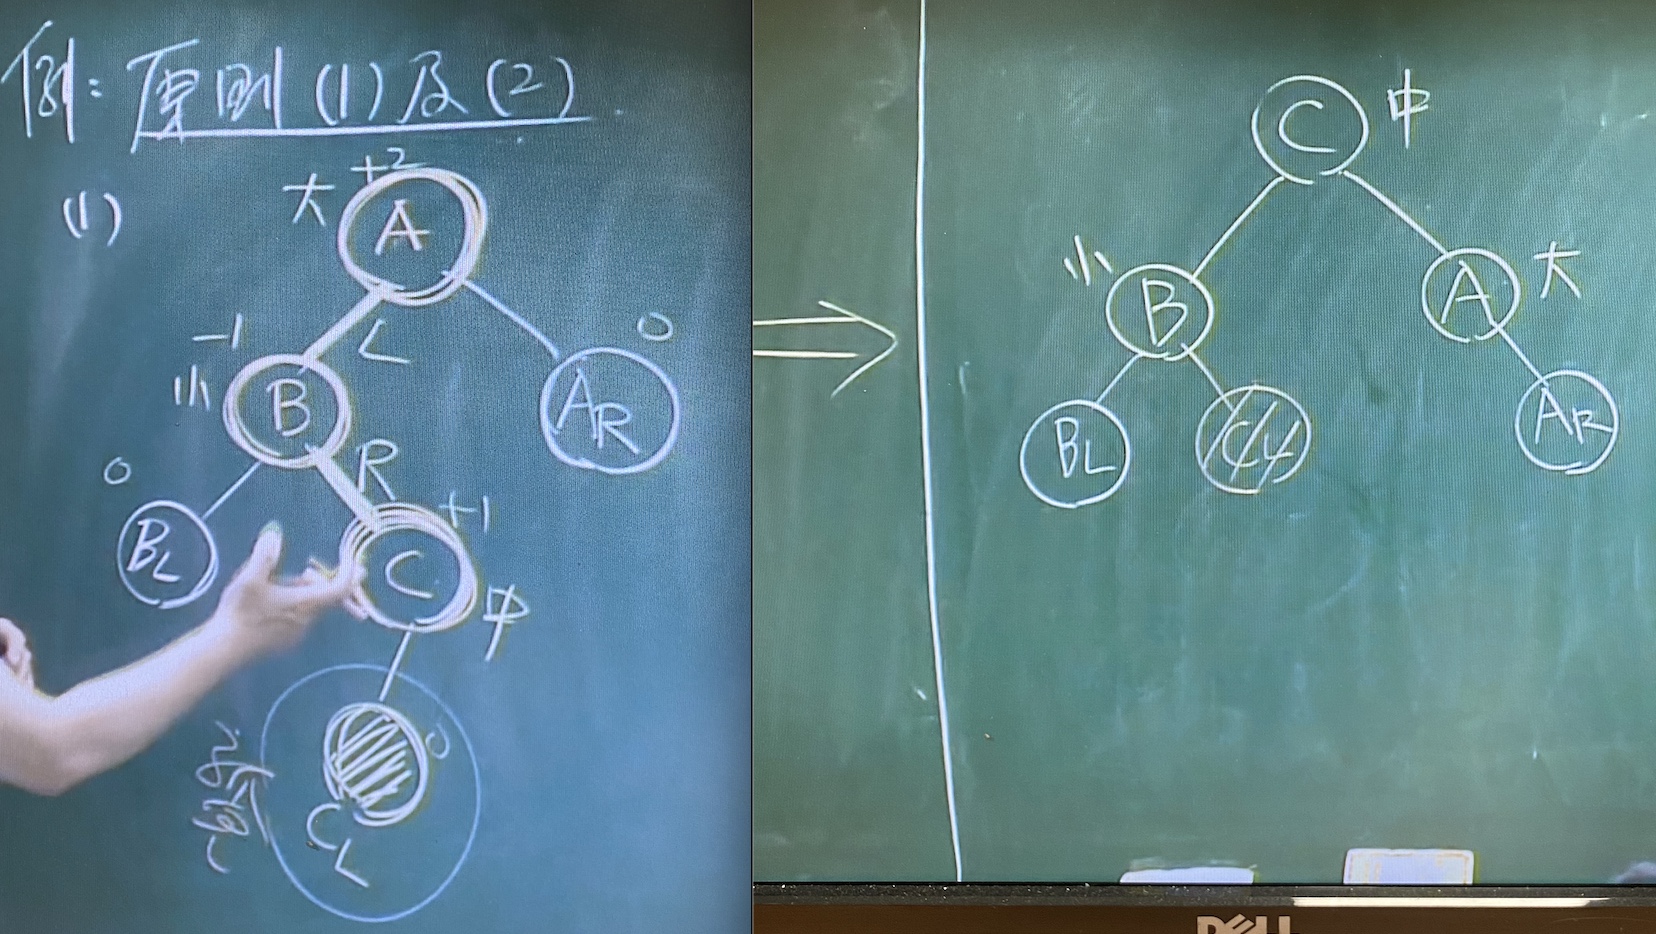 例: 原則(1)及(2)
(1)
大 +2
A
L
-1
小 B
0
AR
R
0
BL
+1
C
中
0
CL
⇒
C 中
小 B
A 大
BL
CL
AR
DELL